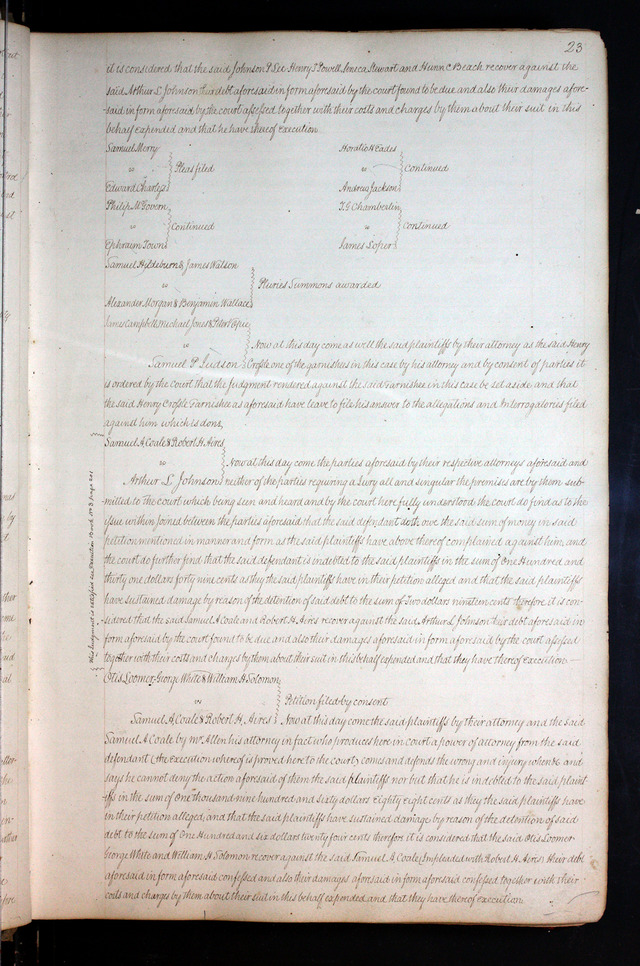 23
it is considered that the said Johnson P Lee Henry T Powell Seneca Stewart and Hunn C. Beach recover against the
said Arthur L. Johnson their debt aforesaid in form aforesaid by the court found to be due and also their damages afore-
said in form aforesaid by the court assessed together with their costs and charges by them about their suit in this
behalf expended and that he have thereof execution
Samuel Merry
vs
Pleas filed
Edward Charles
Horatio H Eades
vs
Continued
Andrew Jackson
Philip McGovern
vs
Continued
Ephraim Town
T. G Chamberlin
vs
Continued
James Loper
Samuel Hyldeburn & James Watson
vs
Pluries Summons awarded
Alexander Morgan & Benjamin Wallace
James Campbell, Michael Jones & Peter
vs
Now at this day come as well the said plaintiffs by their attorney as the said Henry
Samuel P. Judson
Crossle one of the garnishees in this case by his attorney and by consent of parties it
is ordered by the court that the Judgment rendered against the said Garnishee in this case be set aside and that
the said Henry Crossle Garnishee as aforesaid have leave to file his answer to the allegations and Interrogatories filed
against him which is done,
Samuel A. Coale & Robert H. Aires
vs
Now at this day come the parties aforesaid by their respective attorneys aforesaid and
Arthur L. Johnson
neither of the parties requiring a Jury all and singular the premises are by them sub-
mitted to the court which being seen and heard and by the court here fully understood the court do find as to the
issue within Joined between the parties aforesaid that the said defendant doth owe the said sum of money in said
petition mentioned in manner and form as the said plaintiffs have above thereof complained against him, and
the court do further find that the said defendant is indebted to the said plaintiffs in the sum of One Hundred and
thirty one dollars forty nine cents as they the said plaintiffs have in their petition alleged and that the said plaintiffs
have sustained damage by reason of the detention of said debt to the sum of Two dollars nineteen cents therefore it is con-
sidered that the said Samuel A Coale and Robert H. Aires recover against the said Arthur L Johnson their debt aforesaid in
form aforesaid by the court found to be due and also their damages aforesaid in form aforesaid, by the court assessed
together with their costs and charges by them about their suit in this behalf expended and that they have thereof execution
This Judgment is satisfied see Execution Book No 3 page 201
Otis Loomer George White & William H. Solomon
vs
Petition filed by consent
Samuel A. Coale & Robert H. Aires
Now at this day come the said plaintiffs by their attorney and the Said
Samuel A Coale by Mr. Allen his attorney in fact who produces here in court a power of attorney from the said
defendant (the execution whereof is proved here to the court) comes and defends the wrong and injury when &c and
says he cannot deny the action aforesaid of them the said plaintiffs nor but that he is indebted to the said plaint-
iffs in the sum of One thousand nine hundred and sixty dollars Eighty eight cents as they the said plaintiffs have
in their petition alleged, and that the said plaintiffs have sustained damage by reason of the detention of said
debt to the sum of One Hundred and six dollars twenty four cents therefore it is considered that the said Otis Loomer
George White and William H. Solomon recover against the said Samuel A Coale (Impleaded with Robert H. Aires) their debt
aforesaid in form aforesaid confessed and also their damages aforesaid in form aforesaid confessed together with their
costs and charges by them about their suit in this behalf expended, and that they have thereof execution.